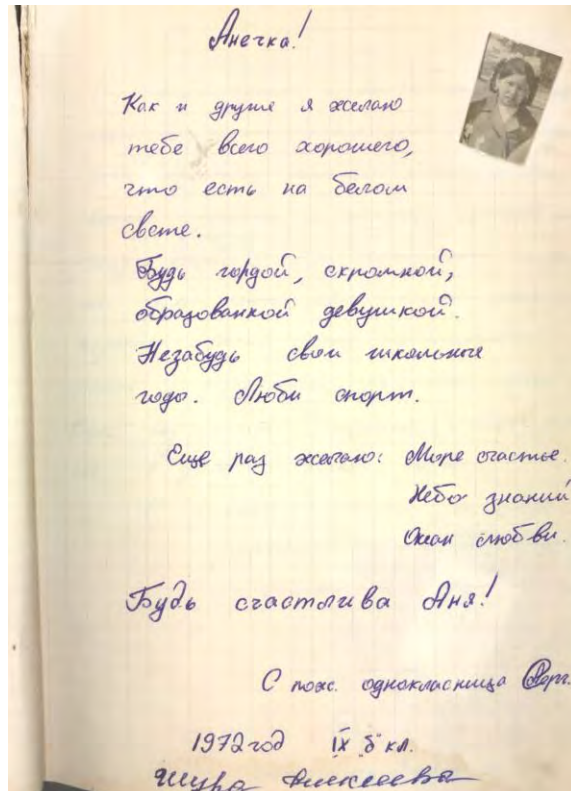 Анечка!
Как и другие я желаю
тебе всего хорошего,
что есть на белом
свете.
Будь гордой, скромной,
образованной девушкой.
Незабудь свои школьные
годы. Люби спорт.
Еще раз желаю: Море счастье.
Небо знаний
Океан любви.
Будь счастлива Аня!
С пож. однокласница
1972 год IX "б" кл.
Шура Алексеева